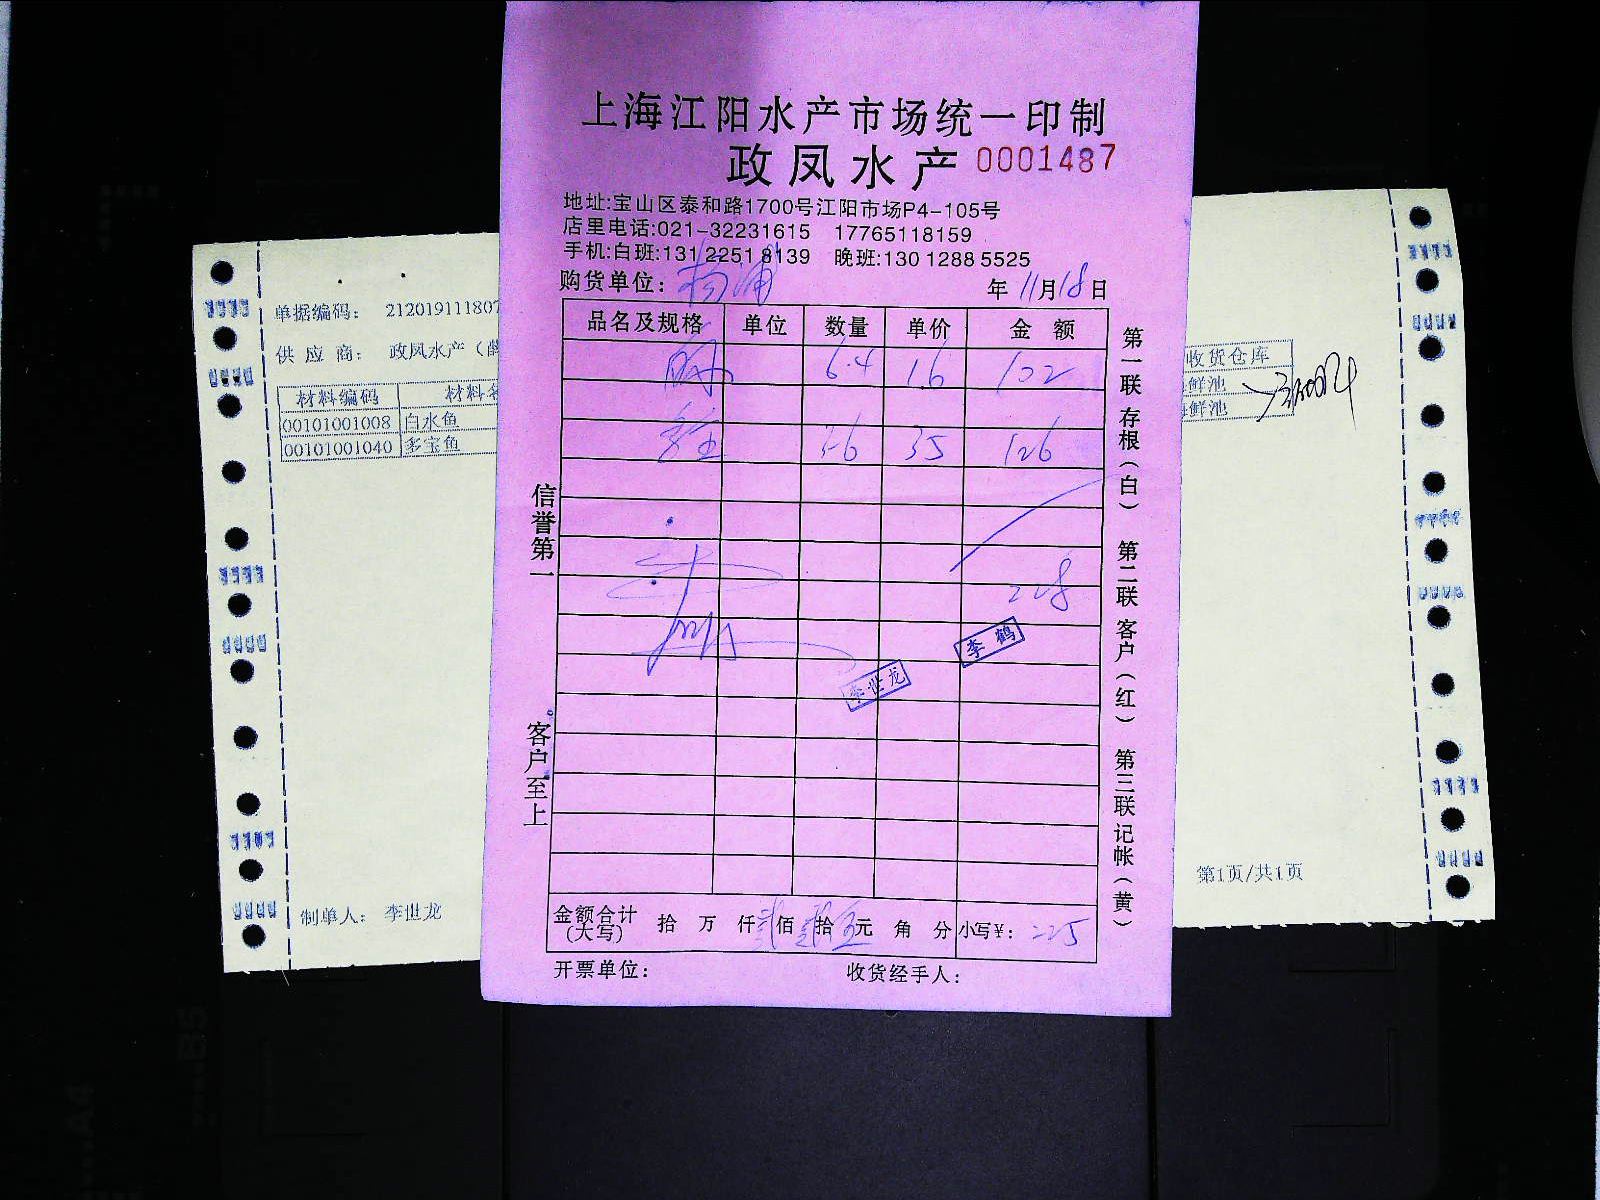 上海江阳水产市场统一印制
政凤水产 0001487
地址:宝山区泰和路1700号江阳市场P4-105号
店里电话:021-32231615 17765118159
手机:白班:131 2251 8139 晚班:130 1288 5525
购货单位: 杨浦 年 11月18日
品名及规格 单位 数量 单价 金额
6.4 16 102
多宝 3.6 35 126
228
李鹤
李世龙
金额合计(大写) 拾 万 仟 贰佰 贰拾 伍元 角 分 小写¥: 225
开票单位: 收货经手人:
信誉第一
客户至上
第一联存根(白) 第二联客户(红) 第三联记帐(黄)
单据编码: 212019111807
供应商: 政凤水产(
材料编码 材料名
00101001008 白水鱼
00101001040 多宝鱼
制单人: 李世龙
收货仓库
鲜池
鲜池
第1页/共1页